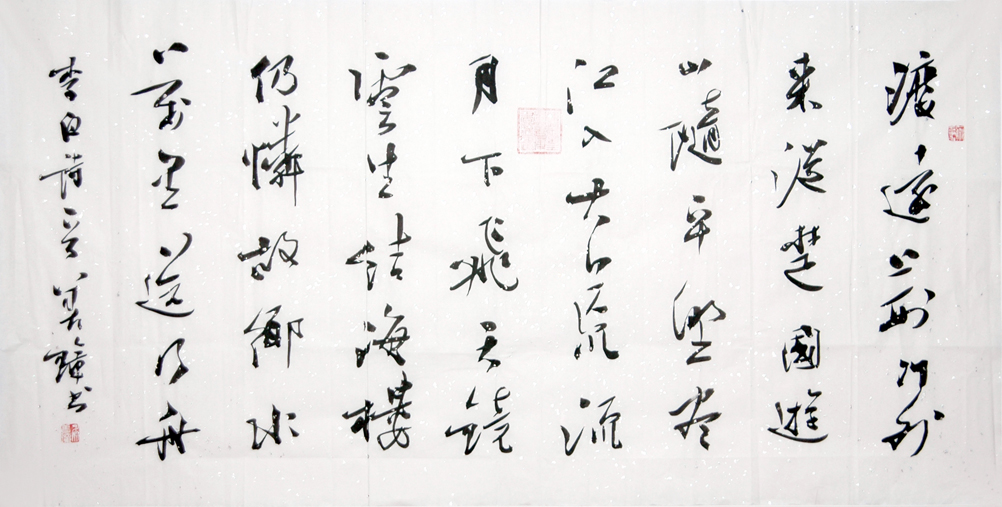 渡遠荆门外
来從楚國遊
山隨平野尽
江入大荒流
月下飛天鏡
雲生結海樓
仍憐故鄉水
萬里送行舟
李白詩一首 书